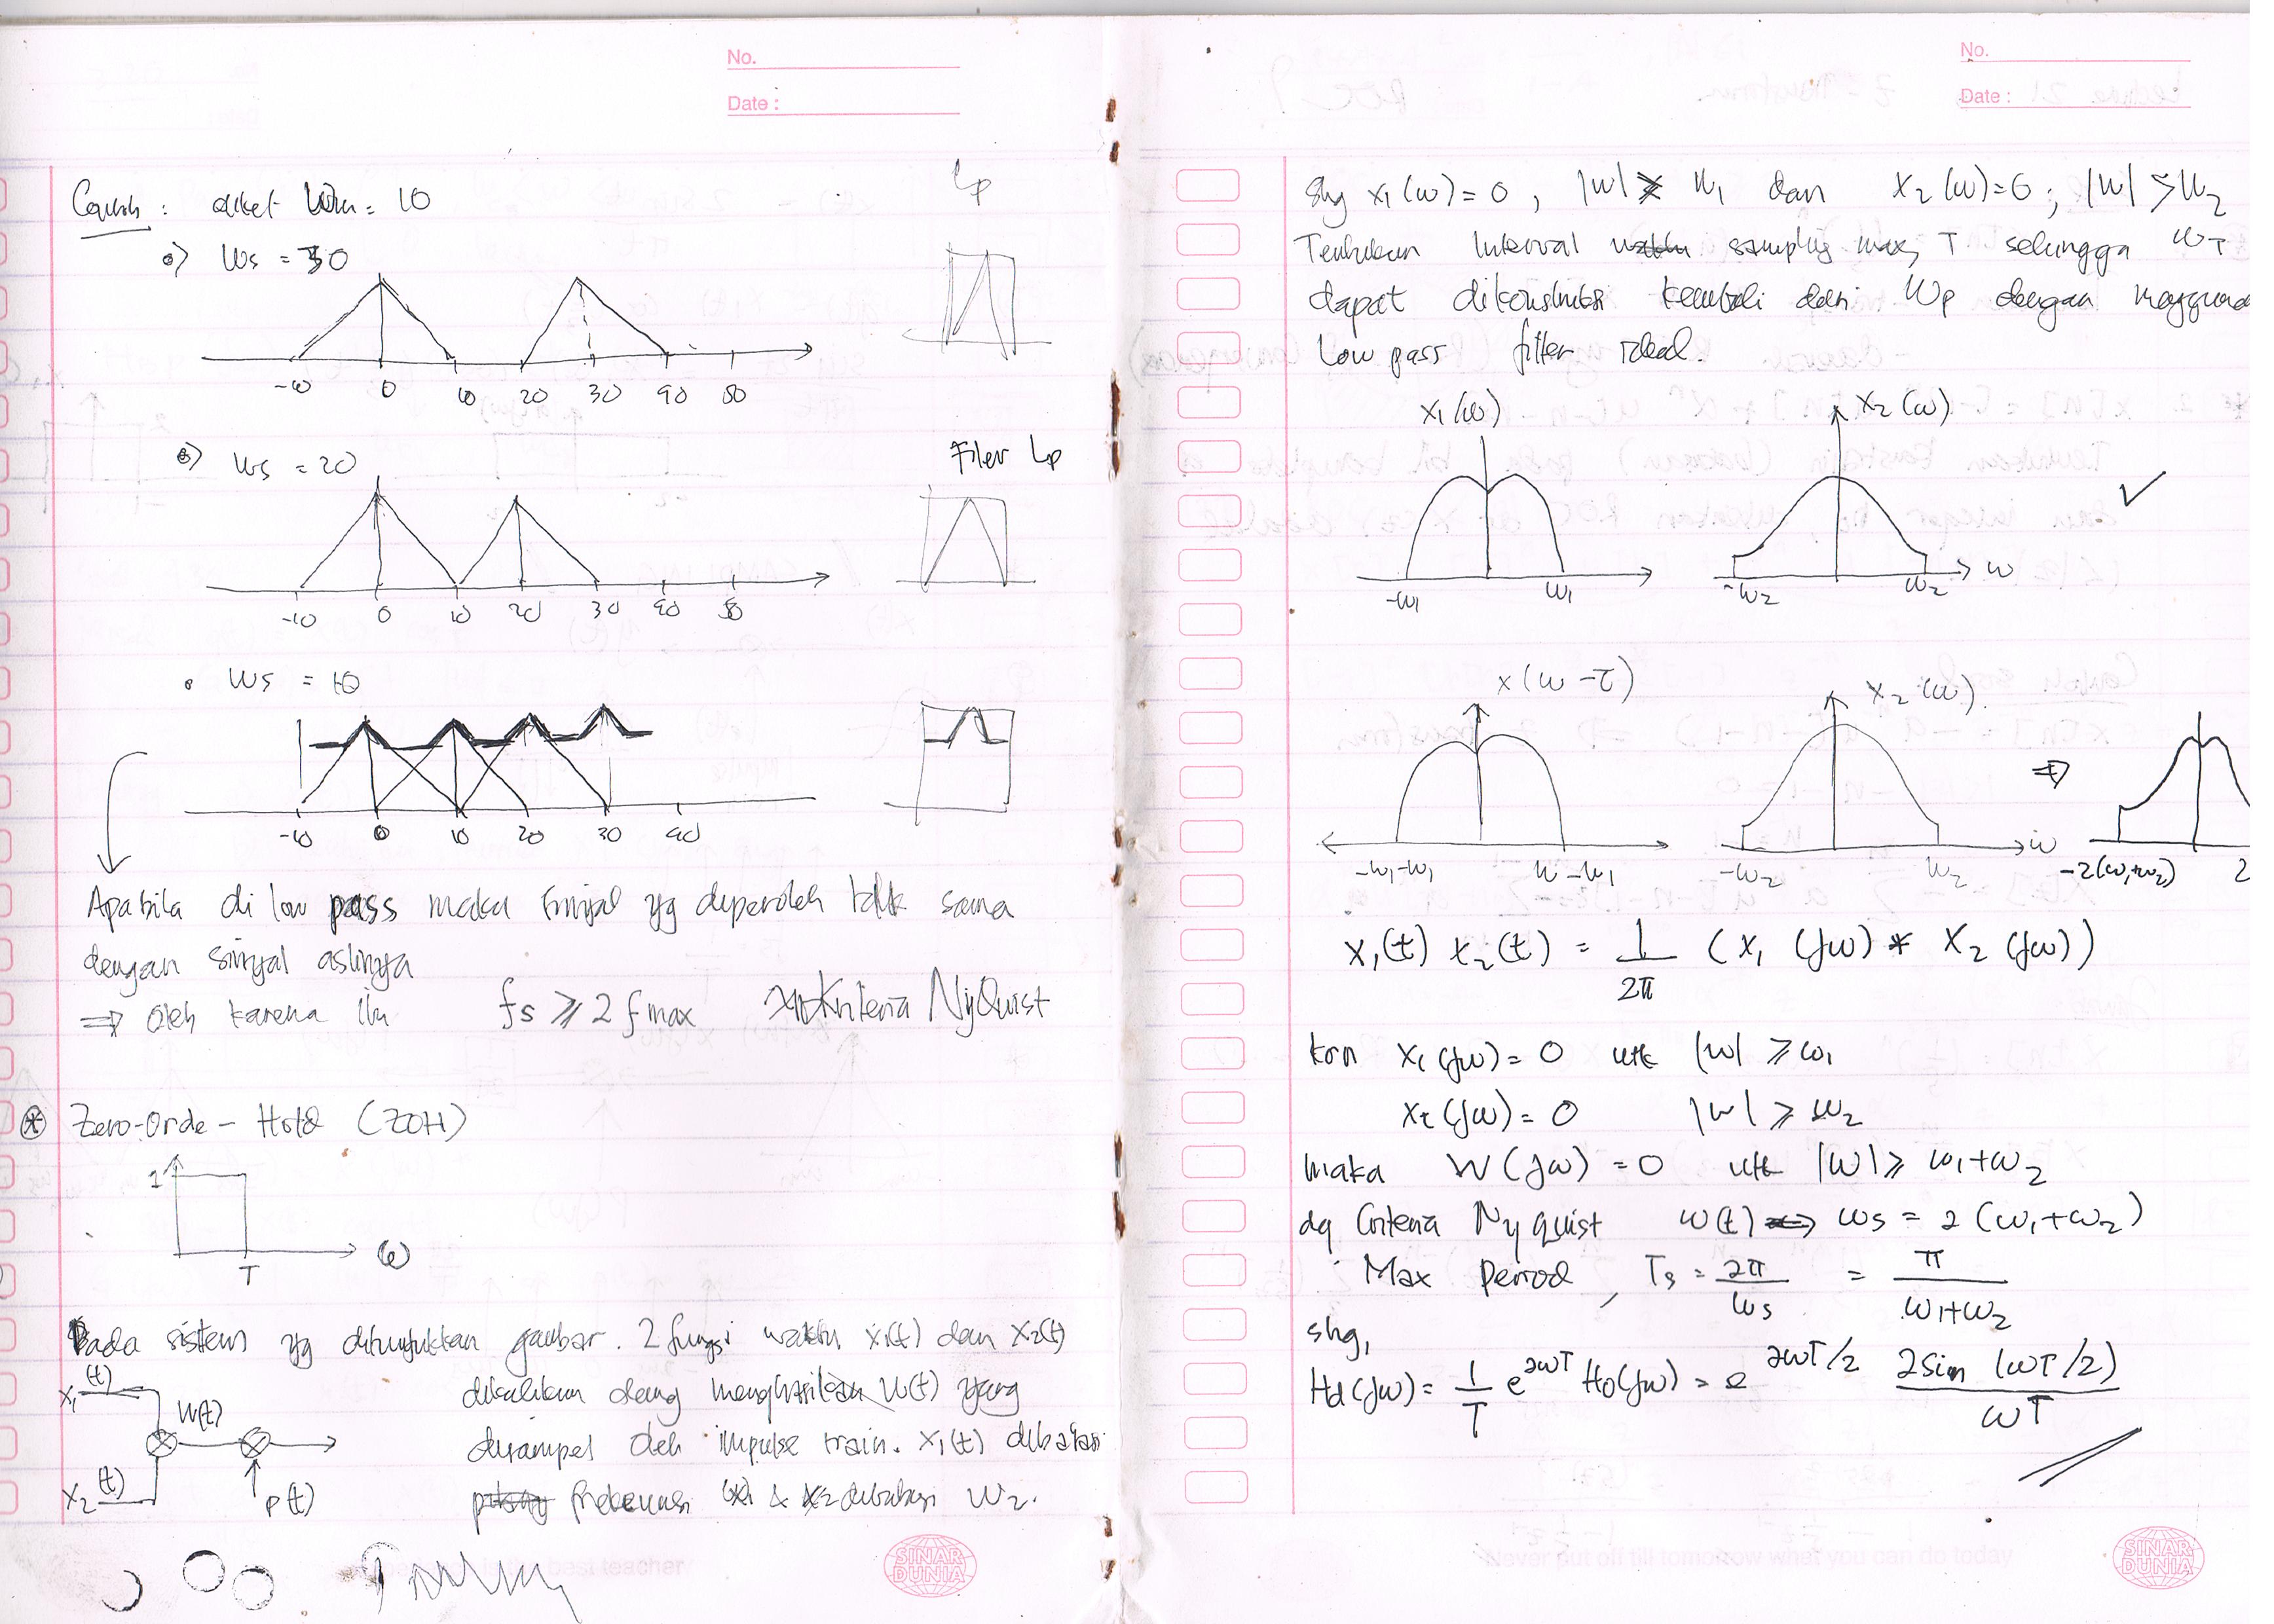 No.
Date :
Contoh : diket Wm = 10
Lp
•) Ws = 30
-10 0 10 20 30 40 50
•) Ws = 20
Filer Lp
-10 0 10 20 30 40 50
• Ws = 10
-10 0 10 20 30 40
Apabila di low pass maka sinyal yg diperoleh tdk sama
dengan sinyal aslinya
⇒ oleh karena itu fs ≥ 2 f max Kriteria NyQuist
* Zero-Orde-Hold (ZOH)
1
T
Pada sistem yg ditunjukkan gambar. 2 fungsi waktu x1(t) dan x2(t)
x1(t)
dikalikan menghasilkan W(t) yang
W(t)
disampel oleh impulse train. x1(t) dibatasi
x2(t)
p(t)
frekuensi W1 & x2 dibatasi W2.
SINAR DUNIA
No.
Date :
shg x1(w) = 0, |w| ≥ W1 dan x2(w) = 0; |w| > W2
Tentukan Interval sampling max, T sehingga WT
dapat dikonstruksi kembali dari Wp dengan
Low pass filter ideal.
x1(ω) x2(ω)
-ω1 ω1 -ω2 ω2 ω
x(ω-τ) x2(ω)
⇒
-ω1-ω1 ω-ω1 -ω2 ω2 ω -2(ω1+ω2) 2
x1(t) x2(t) = 1/2π (x1(jω) * x2(jω))
krn x1(jω) = 0 utk |ω| ≥ ω1
x2(jω) = 0 |ω| ≥ ω2
maka W(jω) = 0 utk |ω| ≥ ω1+ω2
dg Criteria Nyquist w(t) ⇔ ωs = 2(ω1+ω2)
Max Period, Ts = 2π/ωs = π/ω1+ω2
shg,
Hd(jω) = 1/T e^jωT H0(jω) = e^jωT/2 2sin(ωT/2)/ωT
Never put off till tomorrow what you can do today
SINAR DUNIA